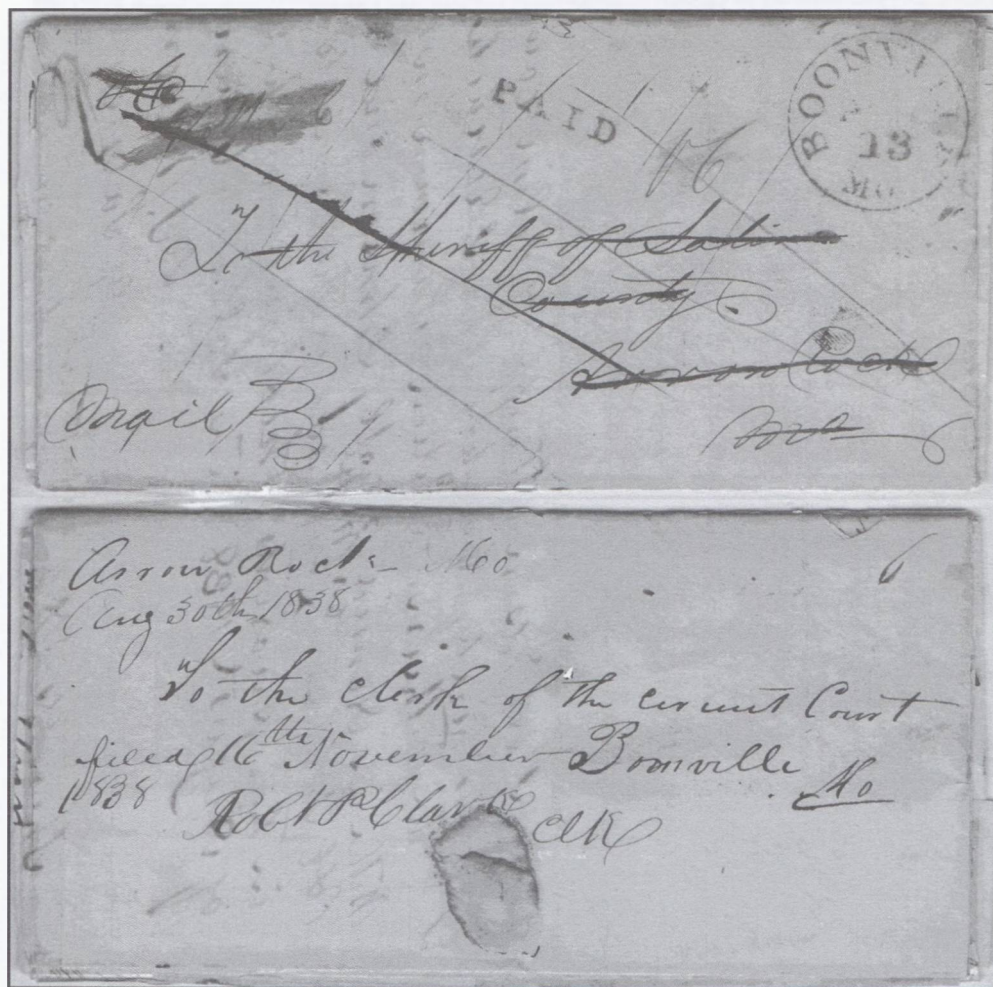 PAID
BOONVILLE
13
MO.
16
To the Sheriff of Saline
County
Arrow Rock
Mo
Mail
Arrow Rock Mo
Aug 30th 1838
6
To the Clerk of the Circuit Court
filed 16th November Boonville
1838 Mo
Robt P Clark
Clk